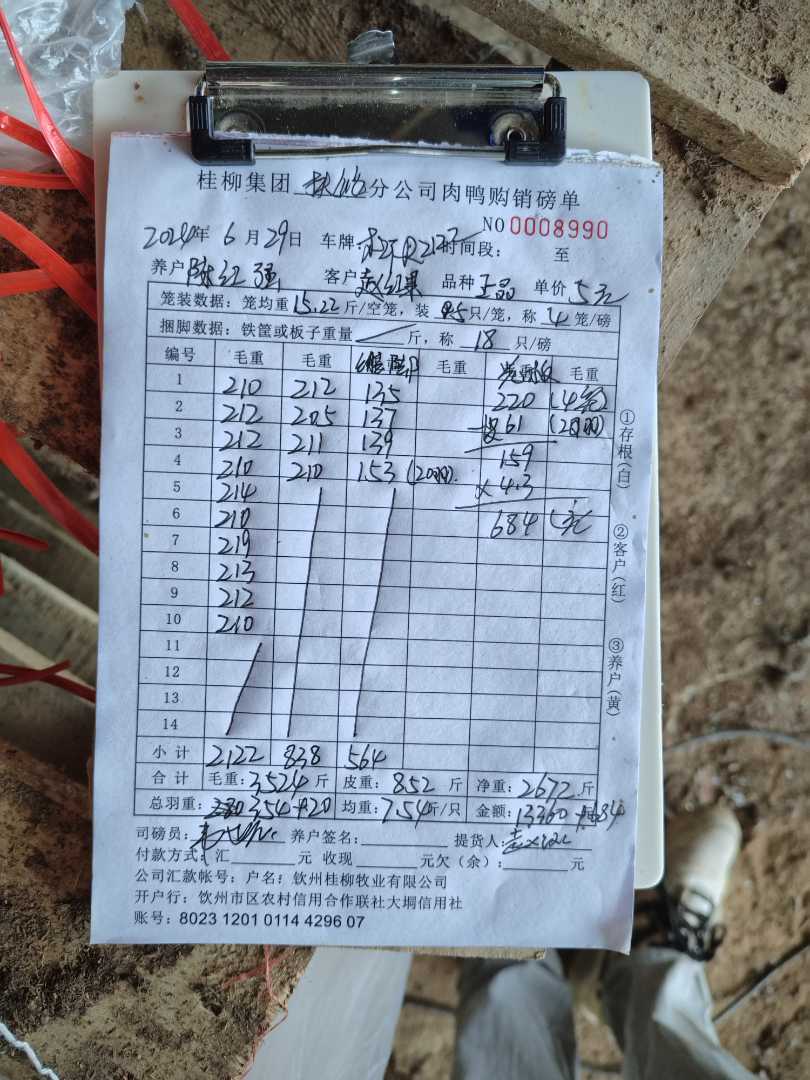 桂柳集团 分公司肉鸭购销磅单
NO 0008990
2024年 6 月 29日 车牌 时间段： 至
养户 陈红强 客户 赵红果 品种 正品 单价 5元
笼装数据：笼均重 15.22 斤/空笼，装 只/笼，称 4 笼/磅
捆脚数据：铁筐或板子重量 斤，称 18 只/磅
编号 毛重 毛重 毛重 毛重
1 210 212 135 220 (4笼)
2 212 205 137 61
3 212 211 139 159
4 210 210 153 (20羽). × 4.3
5 214 684 元
6 210
7 219
8 213
9 212
10 210
11
12
13
14
小计 2122 838 564
合计 毛重：3524 斤 皮重：852 斤 净重：2672 斤
总羽重： 354+20 均重：7.54斤/只 金额：13360 +684
司磅员： 养户签名： 提货人：
付款方式：汇 元 收现 元欠（余）： 元
公司汇款帐号：户名：钦州桂柳牧业有限公司
开户行：钦州市区农村信用合作联社大垌信用社
账号：8023 1201 0114 4296 07
①存根(白)
②客户(红)
③养户(黄)